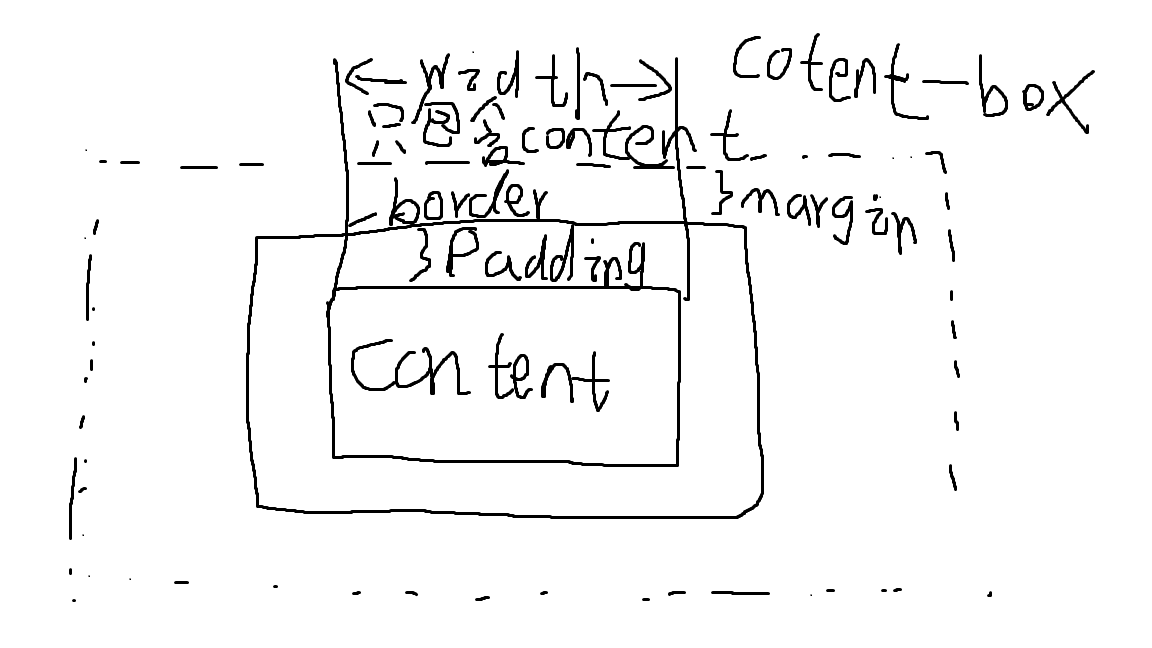 width
cotent-box
只包含content
border
}margin
}Padding
content